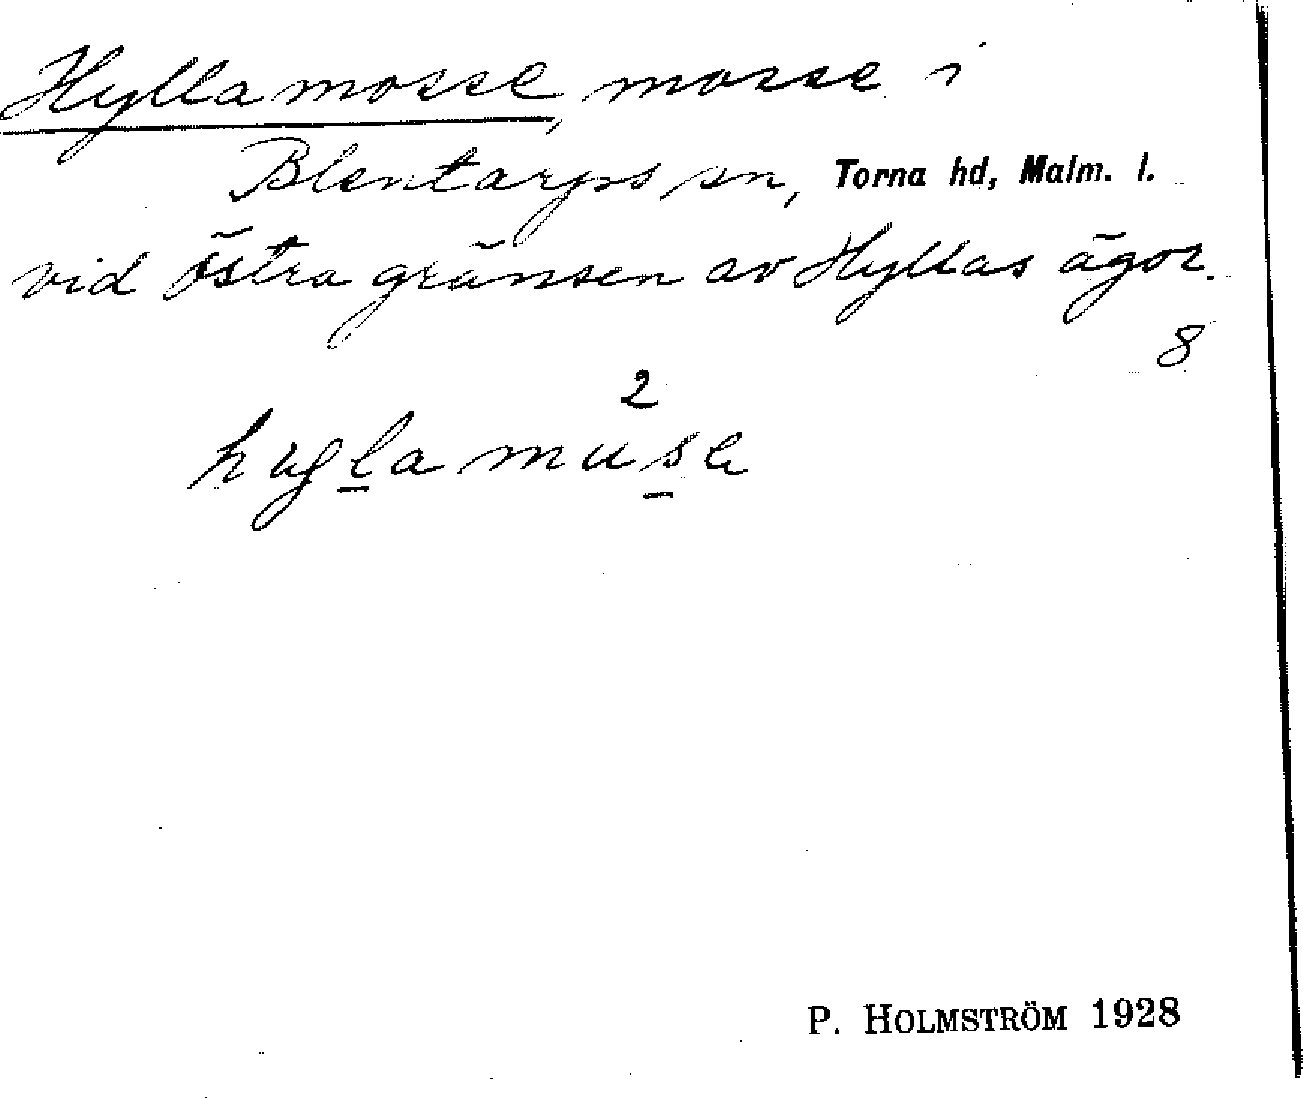 Hyllamosse, mosse i
Blentarps sn, Torna hd, Malm. l.
vid östra gränsen av Hyllas ägor.
8
2
hyl̲amus̲e
P. HOLMSTRÖM 1928